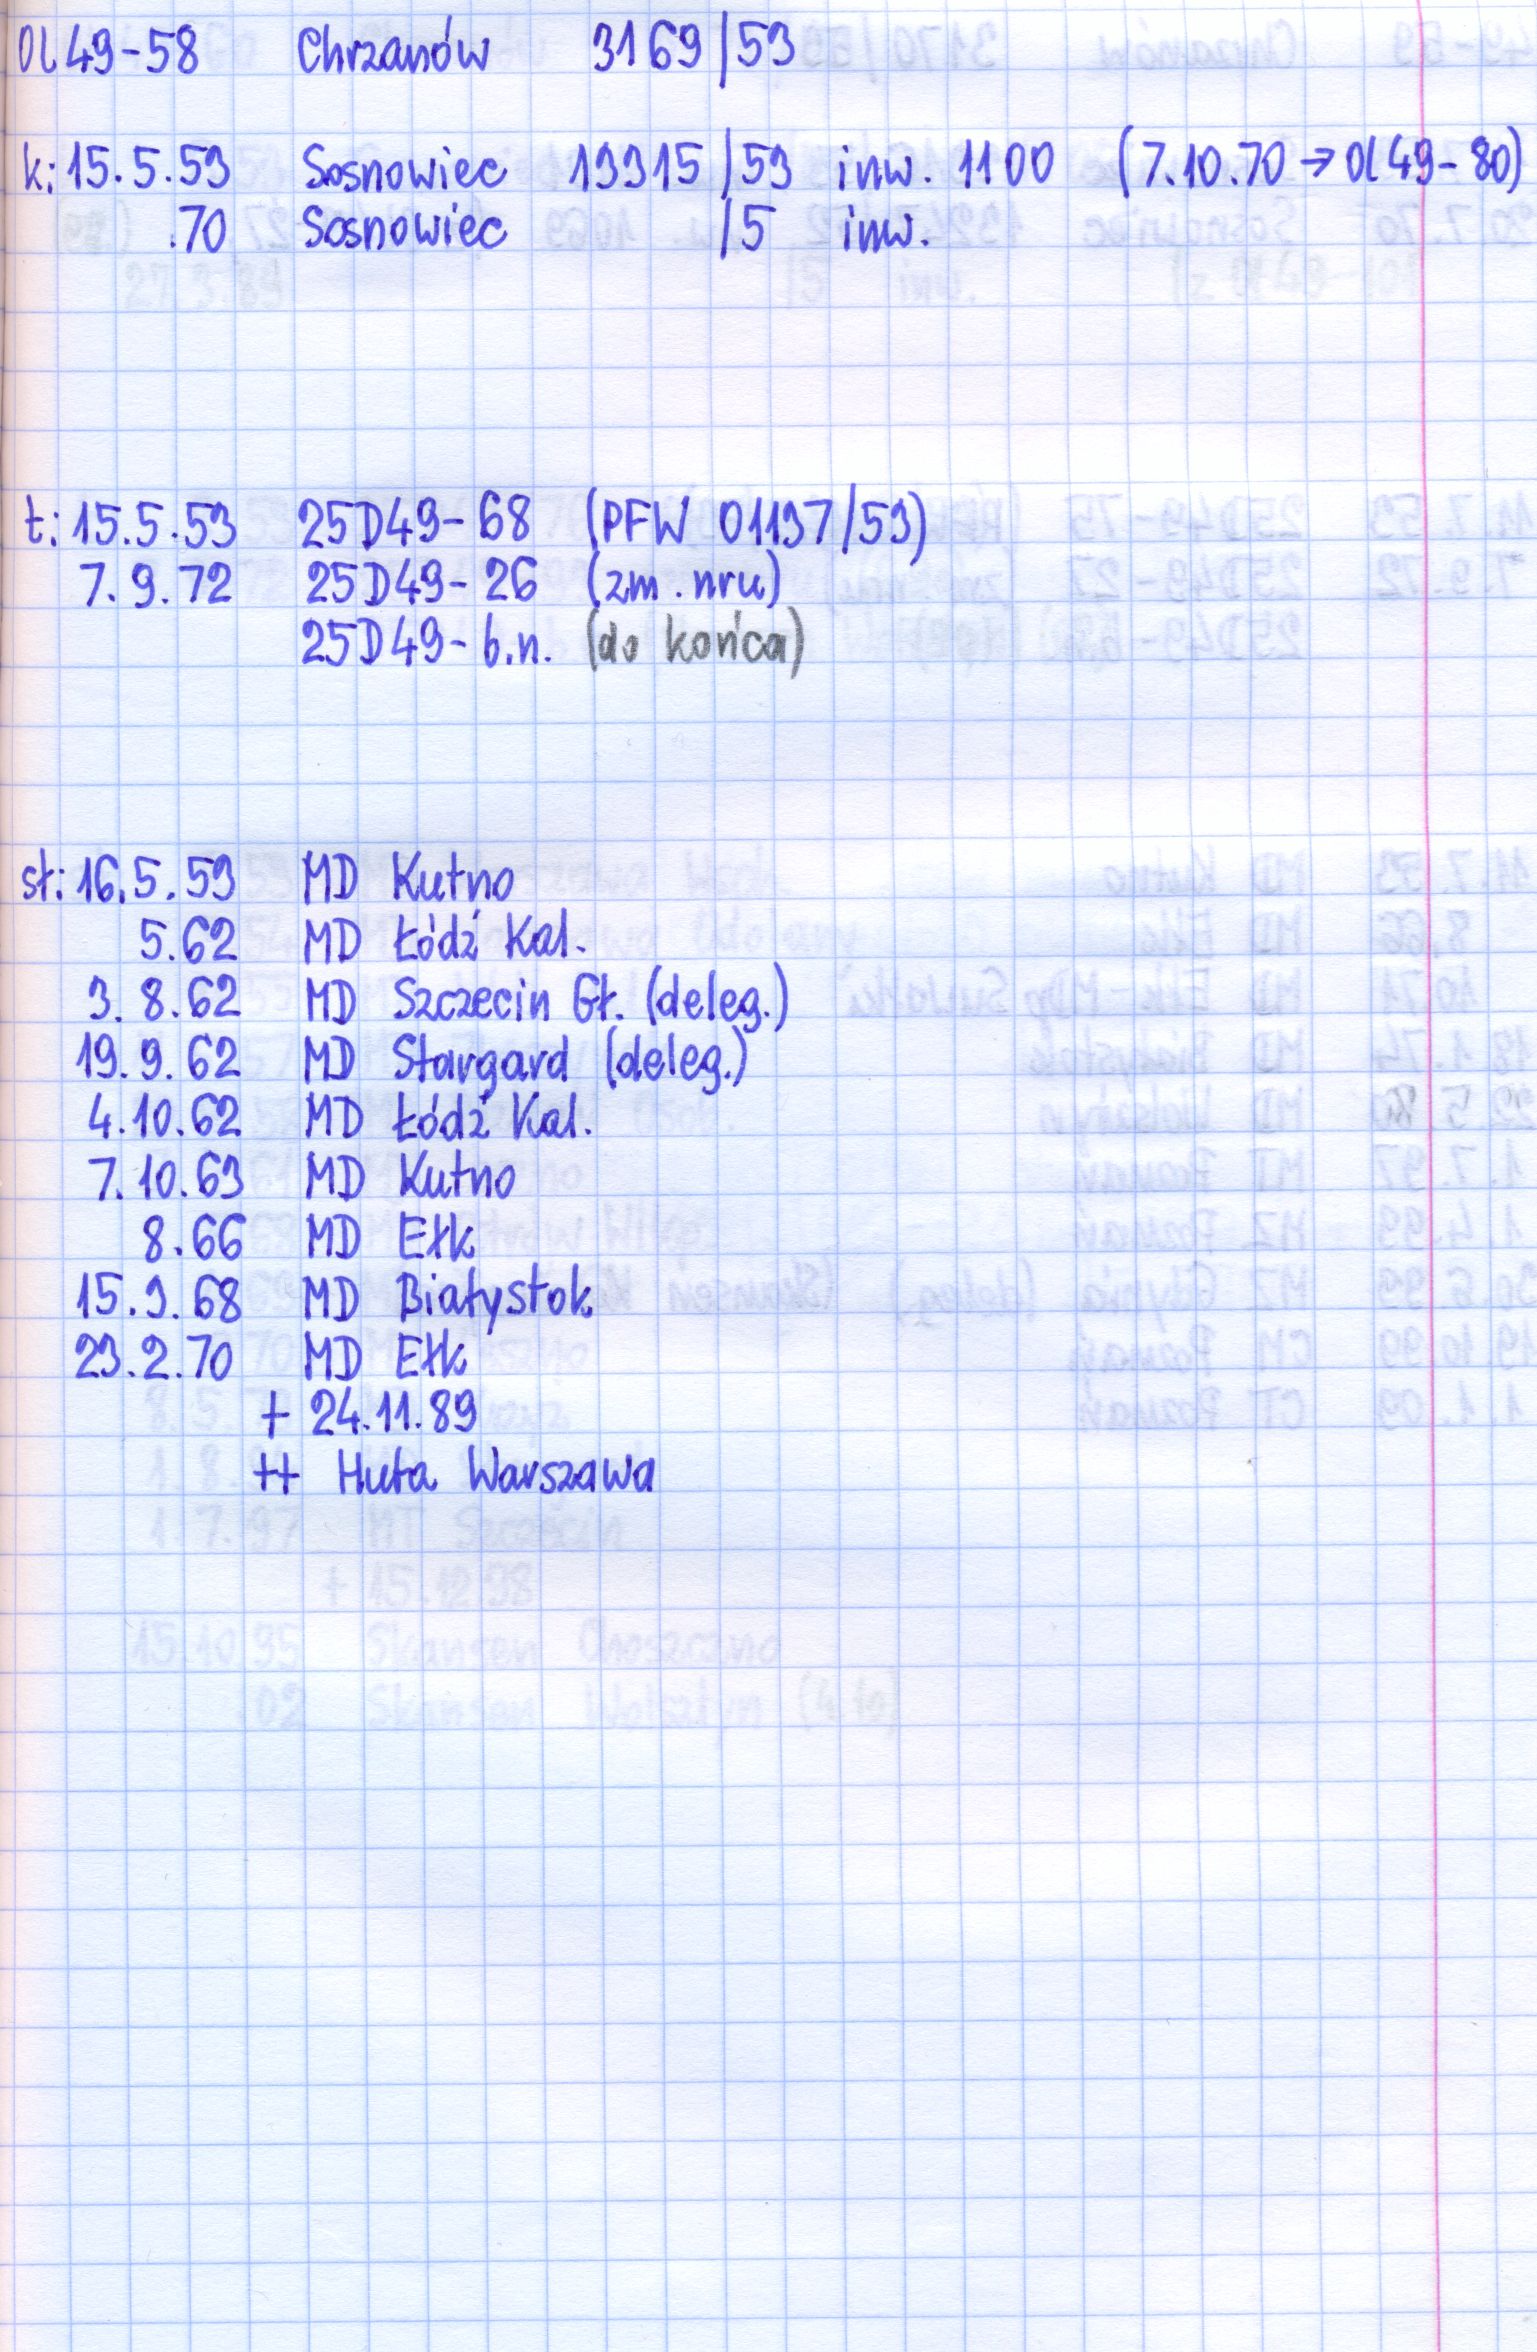 Ol49-58 Chrzanów 3169/53
k: 15.5.53 Sosnowiec 13315/53 inw. 1100 (7.10.70 → Ol49-80)
.70 Sosnowiec /5 inw.
t: 15.5.53 25D49-68 (PFW 01137/53)
7.9.72 25D49-26 (zm. nru)
25D49-b.n. (do końca)
sł: 16.5.53 MD Kutno
5.62 MD Łódź Kal.
3.8.62 MD Szczecin Gł. (deleg.)
19.9.62 MD Stargard (deleg.)
4.10.62 MD Łódź Kal.
7.10.63 MD Kutno
8.66 MD Ełk
15.9.68 MD Białystok
23.2.70 MD Ełk
+ 24.11.89
++ Huta Warszawa